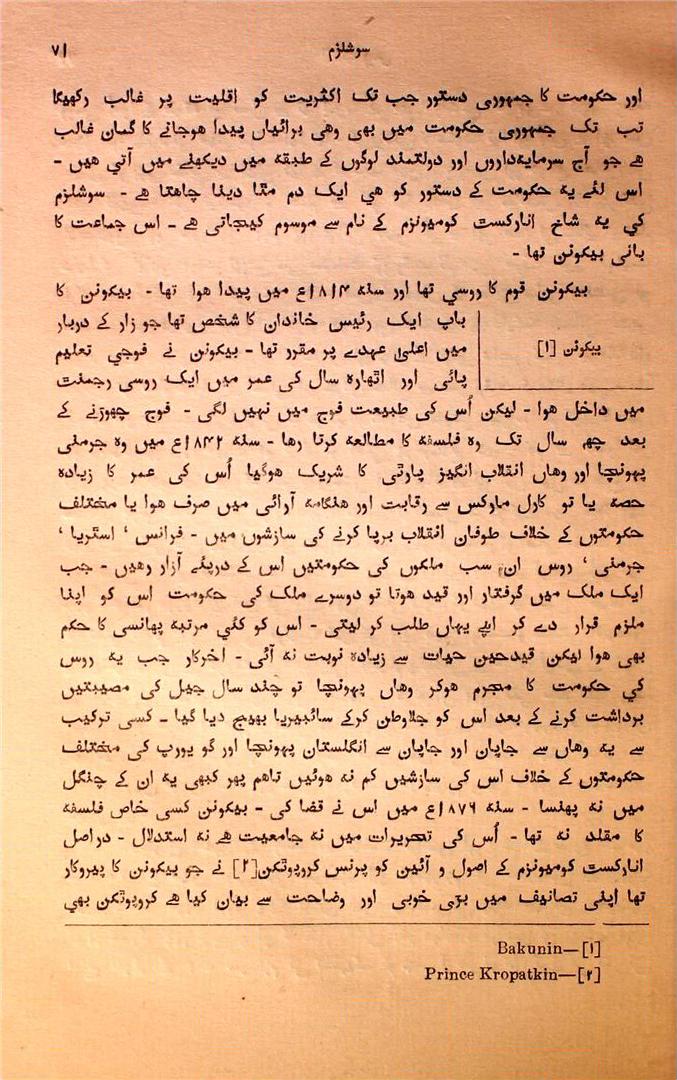 سوشلزم
۷۱
اور حکومت کا جمہوری دستور جب تک اکثریت کو اقلیت پر غالب رکھیگا
تب تک جمہوری حکومت میں بھی وھی برائیاں پیدا ھوجانے کا گمان غالب
ھے جو آج سرمایہداروں اور دولتمند لوگوں کے طبقہ میں دیکھنے میں آتی ھیں -
اس لئے یہ حکومت کے دستور کو ھی ایک دم مٹا دینا چاھتا ھے - سوشلزم
کی یہ شاخ انارکسٹ کومیونزم کے نام سے موسوم کیجاتی ھے - اس جماعت کا
بانی بیکونن تھا -
بیکونن قوم کا روسی تھا اور سنہ ۱۸۱۴ع میں پیدا ھوا تھا - بیکونن کا
باپ ایک رئیس خاندان کا شخص تھا جو زار کے دربار
بیکونن [۱]
میں اعلیٰ عہدے پر مقرر تھا - بیکونن نے فوجی تعلیم
پائی اور اٹھارہ سال کی عمر میں ایک روسی رجمنٹ
میں داخل ھوا - لیکن اُس کی طبیعت فوج میں نہیں لگی - فوج چھوڑنے کے
بعد چھ سال تک وہ فلسفہ کا مطالعہ کرتا رھا - سنہ ۱۸۴۲ع میں وہ جرمنی
پہونچا اور وھاں انقلاب انگیز پارٹی کا شریک ھوگیا اُس کی عمر کا زیادہ
حصہ یا تو کارل مارکس سے رقابت اور ھنگامہ آرائی میں صرف ھوا یا مختلف
حکومتوں کے خلاف طوفان انقلاب برپا کرنے کی سازشوں میں - فرانس ‘ اسٹریا ‘
جرمنی ‘ روس ان سب ملکوں کی حکومتیں اس کے درپئے آزار رھیں - جب
ایک ملک میں گرفتار اور قید ھوتا تو دوسرے ملک کی حکومت اس کو اپنا
ملزم قرار دے کر اپنے یہاں طلب کر لیتی - اس کو کئی مرتبہ پھانسی کا حکم
بھی ھوا لیکن قیدحین حیات سے زیادہ نوبت نہ آئی - آخرکار جب یہ روس
کی حکومت کا مجرم ھوکر وھاں پہونچا تو چند سال جیل کی مصیبتیں
برداشت کرنے کے بعد اس کو جلاوطن کرکے سائبیریا بھیج دیا گیا - کسی ترکیب
سے یہ وھاں سے جاپان اور جاپان سے انگلستان پہونچا اور گو یورپ کی مختلف
حکومتوں کے خلاف اس کی سازشیں کم نہ ھوئیں تاھم پھر کبھی یہ ان کے چنگل
میں نہ پھنسا - سنہ ۱۸۷۶ع میں اس نے قضا کی - بیکونن کسی خاص فلسفہ
کا مقلد نہ تھا - اُس کی تحریرات میں نہ جامعیت ھے نہ استدلال - دراصل
انارکسٹ کومیونزم کے اصول و آئین کو پرنس کروپوٹکن[۲] نے جو بیکونن کا پیروکار
تھا اپنی تصانیف میں بڑی خوبی اور وضاحت سے بیان کیا ھے کروپوٹکن بھی
Bakunin—[۱]
Prince Kropatkin—[۲]